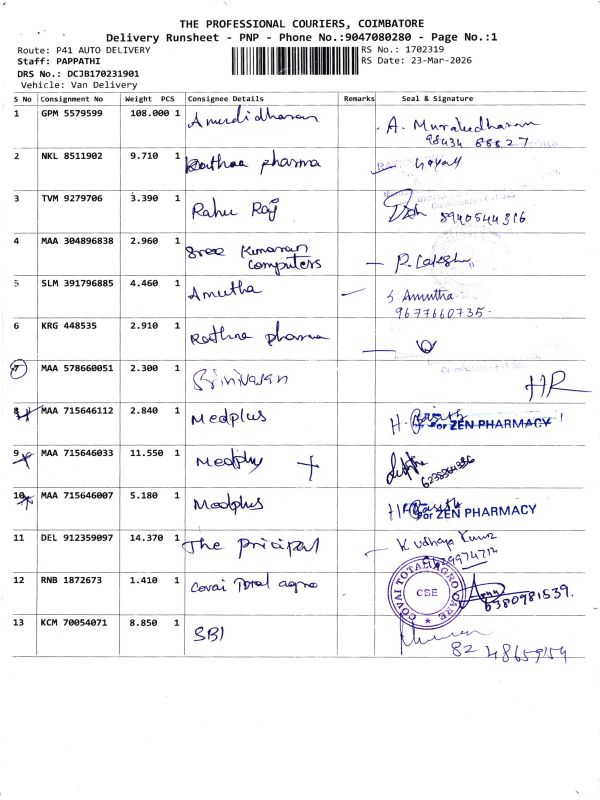 THE PROFESSIONAL COURIERS, COIMBATORE
Delivery Runsheet - PNP - Phone No.:9047080280 - Page No.:1
Route: P41 AUTO DELIVERY RS No.: 1702319
Staff: PAPPATHI RS Date: 23-Mar-2026
DRS No.: DCJB170231901
Vehicle: Van Delivery
S No Consignment No Weight PCS Consignee Details Remarks Seal & Signature
1 GPM 5579599 108.000 1 Amurdidharan A. Muraleedharan
98434 88827
2 NKL 8511902 9.710 1 Rathna pharma
3 TVM 9279706 3.390 1 Rahu Raj 8940544316
4 MAA 304896838 2.960 1 Sree Kumaran P. Lakshmi
computers
5 SLM 391796885 4.460 1 Amutha S Amutha
9677660735.
6 KRG 448535 2.910 1 Rathna pharma
7 MAA 578660051 2.300 1 Srinivasan HR
8 MAA 715646112 2.840 1 Medplus
For ZEN PHARMACY
9 MAA 715646033 11.550 1 Medplus
6238364386
10 MAA 715646007 5.180 1 Medplus
For ZEN PHARMACY
11 DEL 912359097 14.370 1 The pricipal K Udhaya Kumar
12 RNB 1872673 1.410 1 Covai Total agro COVAI TOTAL AGRO CARE CBE
6380981539.
13 KCM 70054071 8.850 1 SBI
82 48659154